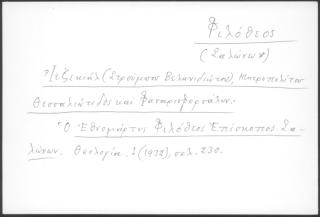 Φιλόθεος
(Σαλώνων)
Ἰεζεκιὴλ (Στρούμπου Βελανιδιώτου), Μητροπολίτου
Θεσσαλιώτιδος καὶ Φαναριοφερσάλων.
Ὁ Ἐθνομάρτυς Φιλόθεος Ἐπίσκοπος Σα-
λώνων. Θεολογία. 1 (1932), σελ. 230.